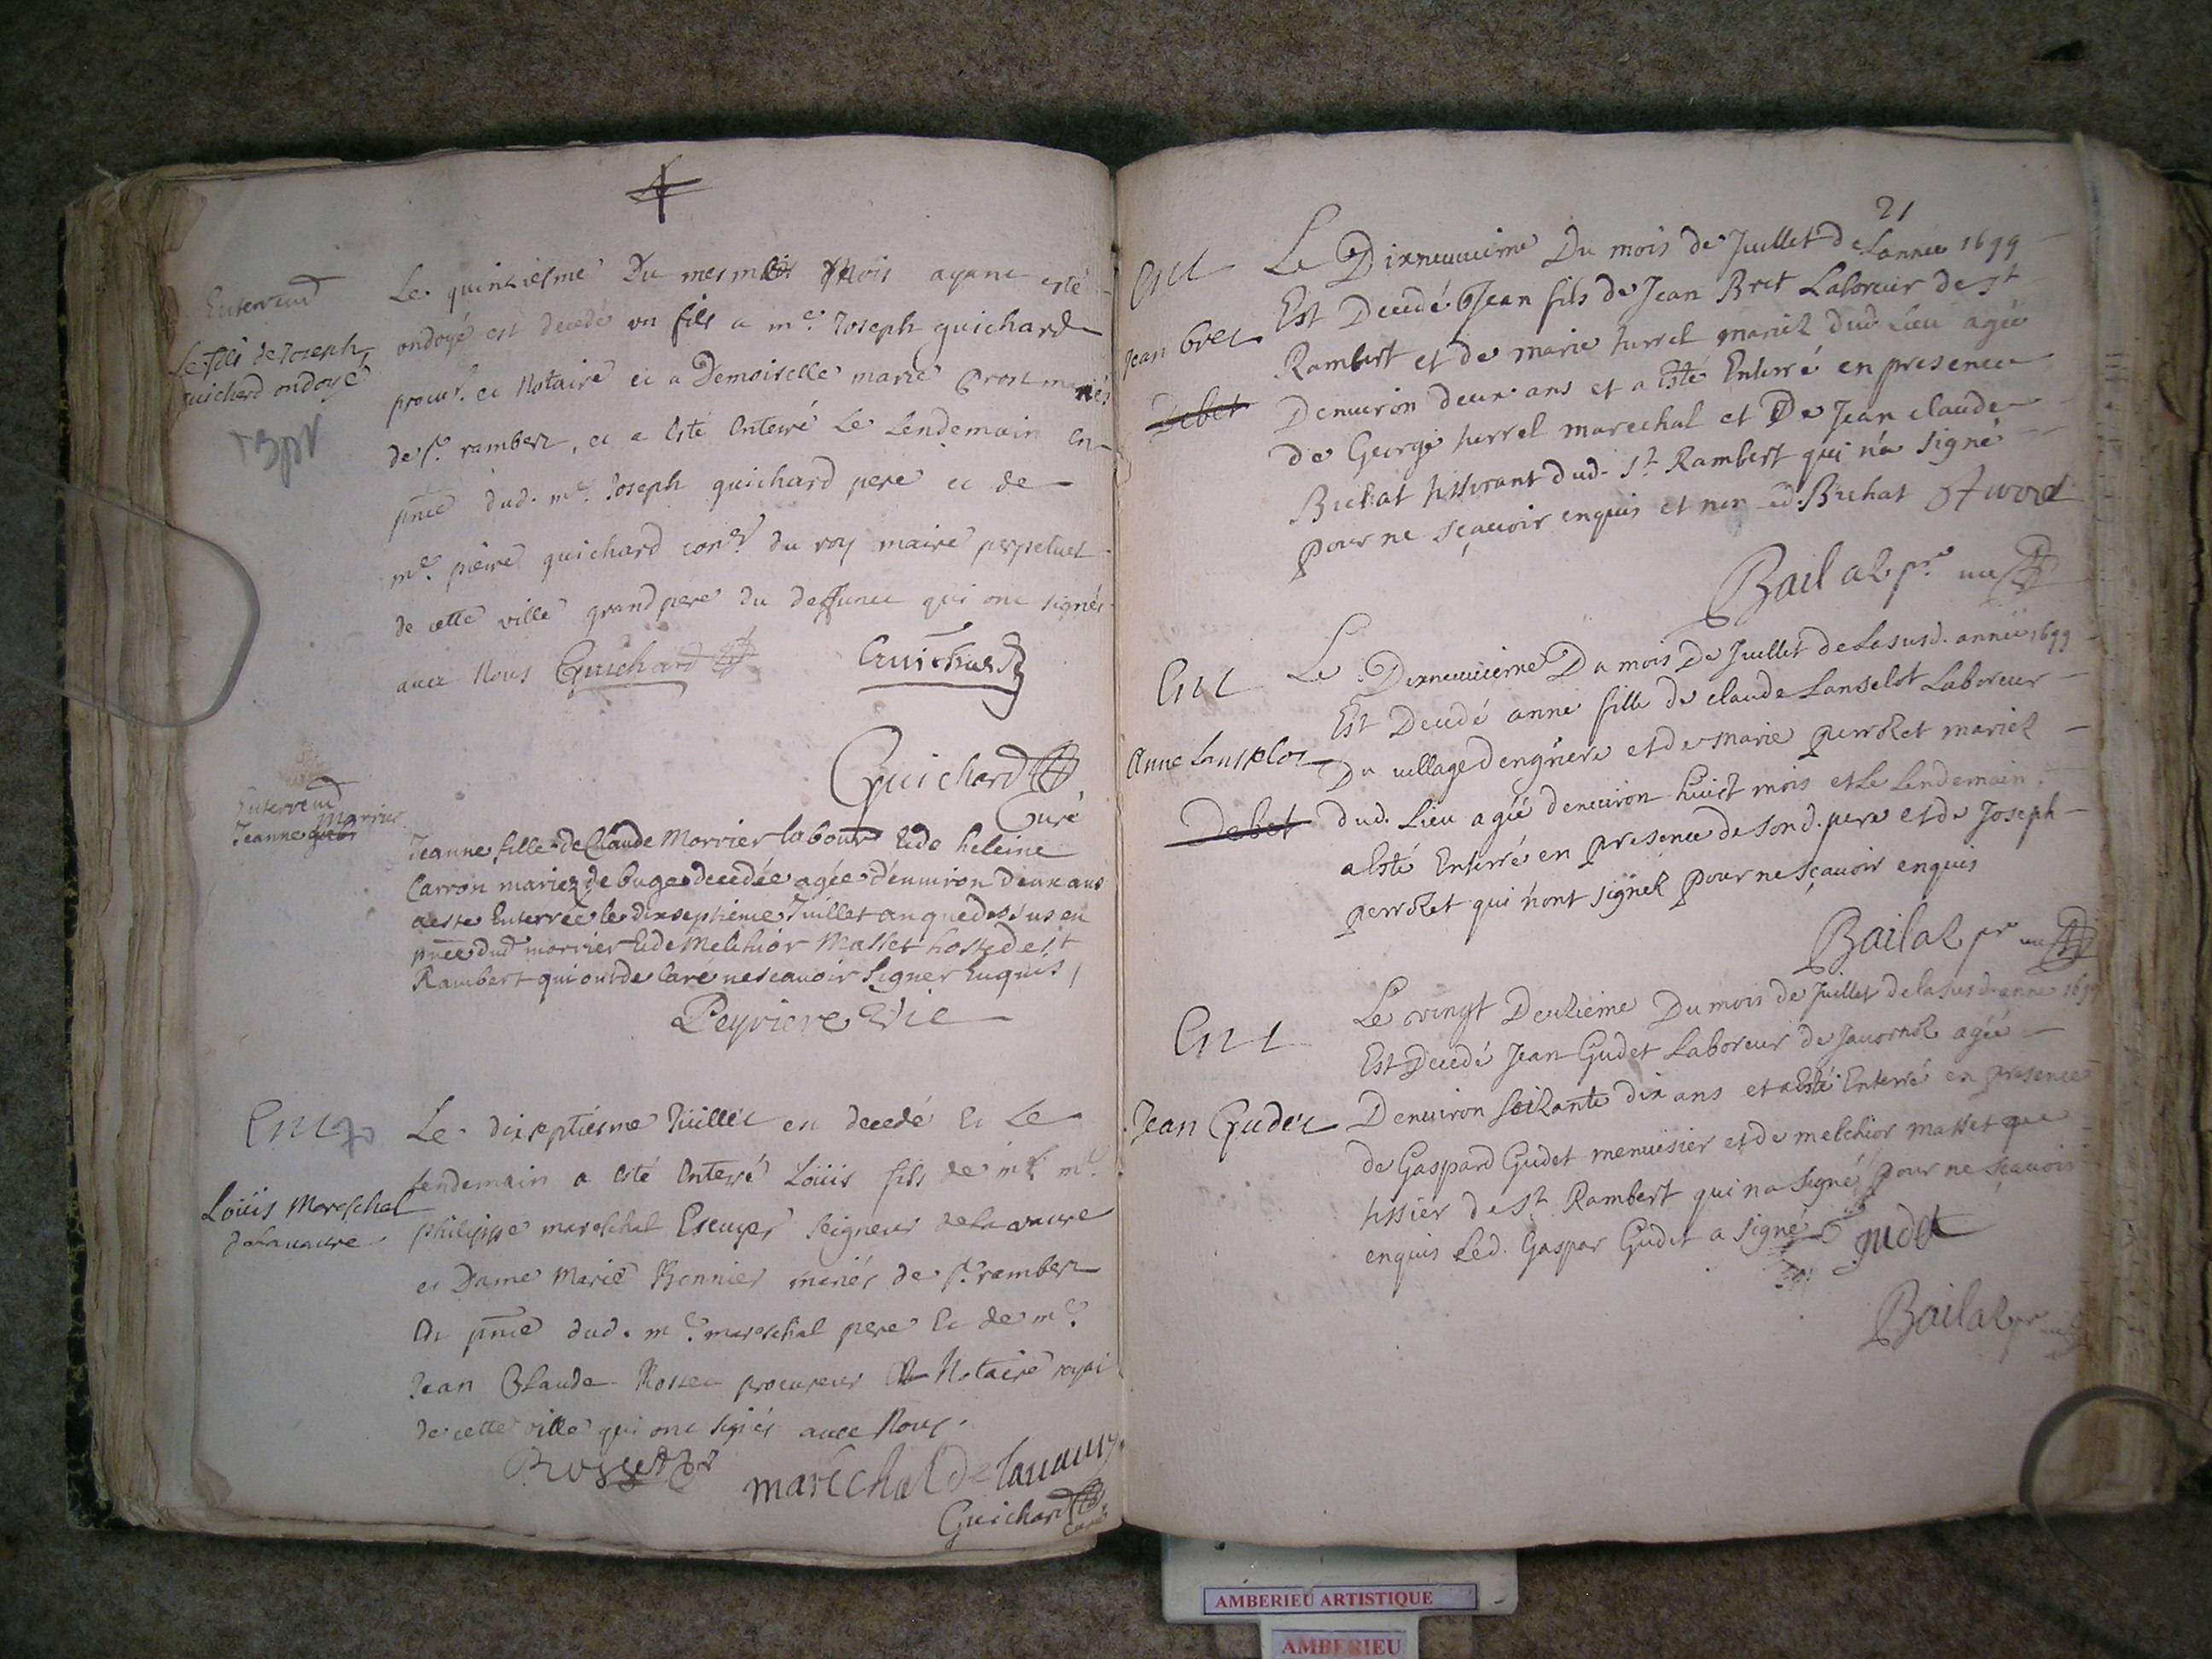 Enterrem̅t
Le fils de Joseph
guichard ondoyé
Le quinziesme Du mesme mois ayant esté
ondoyé est decedé un fils a me. Joseph guichard
procur. et Notaire et a Demoiselle marie Prost mariés
de st. rambert, et a esté enterré Le Lendemain en
pnce dud. me. Joseph guichard pere et de
me. pierre guichard coner du roy maire perpetuel
de cette ville grand pere du deffunct qui ont signés
avec Nous Guichard Guichard
Guichard
Curé
Enterrem̅t
Jeanne Morrier
Jeanne fille de Claude Morrier labour et de heleine
Carron mariez de buges decedée agée d'environ deux ans
a este Enterrée le dixseptieme Juillet an que dessus en
pnce dud morrier et de Melchior Masset hoste de st
Rambert qui ont declaré ne scavoir signer Enquis /
Peyriere Vic
Ent
Louis Mareschal
de Lavavre
Le dixseptiesme Juillet est decedé et Le
lendemain a esté enterré Loüis fils de me
philippe mareschal Escuyer seigneur de La vavre
et Dame Marie Bonnier mariés de st. rambert
En pnce dud. me. mareschal pere et de me.
Jean Claude Rosset procureur et Notaire royal
de cette ville qui ont signés avec Nous.
Rosset marechal De lavavre
Guichard
Curé
21
Ent
Jean bret
Debet
Le Dixneuvieme Du mois de Juillet de Lannee 1699
Est Decedé Jean fils de Jean Bret Laboreur de st
Rambert et de marie turrel mariez dud Lieu agée
Denviron deux ans et a Esté Enterré en presence
de George turrel marechal et De Jean claude
Bichat tisserant dud. St Rambert qui n'a signé
pour ne sçavoir enquis et non led. Bichat
Bailal pre
Ent
Anne Lanselot
Debet
Le Dixneuvieme Du mois De Juillet de La susd. année 1699
Est Decedé anne fille de claude Lanselot Laboreur
Du village dengriere et de marie perrozet mariez
dud. Lieu agée denviron huict mois et Le Lendemain
a Esté Enterré en presence de son d. pere et de Joseph
perrozet qui n'ont signez pour ne sçavoir enquis
Bailal pre
Ent
Jean Gudet
Le vingt Deuzieme Du mois de Juillet de la susd. anne 1699
Est Decedé Jean Gudet Laboreur de Javornoz agée
Denviron soizante dix ans et a esté Enterré en presence
de Gaspard Gudet menuisier et de melchior masset
tissier de St Rambert qui n'a signé pour ne sçavoir
enquis Led. Gaspar Gudet a signé Gudet
Bailal pre
AMBERIEU ARTISTIQUE
AMBERIEU